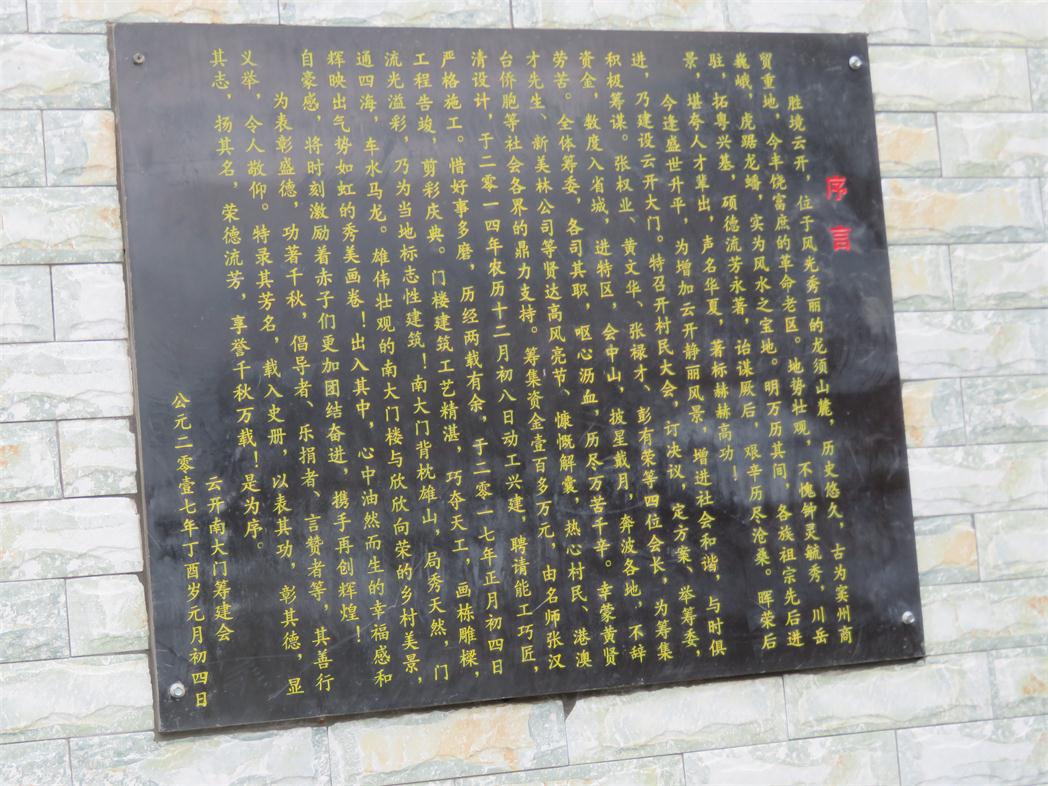 序言
胜境云开，位于风光秀丽的龙须山麓，历史悠久，古为窦州商
贸重地，今丰饶富庶的革命老区。地势壮观，不愧钟灵毓秀，川岳
巍峨，虎踞龙蟠，实为风水之宝地。明万历其间，各族祖宗先后进
驻，拓粤兴基，硕德流芳永著，诒谋厥后，艰辛历尽沧桑。晖荣后
景，堪夸人才辈出，声名华夏，著标赫赫高功！
今逢盛世升平，为增加云开静丽风景，增进社会和谐，与时俱
进，乃建设云开大门。特召开村民大会，订决议，定方案、举筹委，
积极筹谋。张权业、黄文华、张禄才、彭有荣等四位会长，为筹集
资金，数度入省城，进特区，会中山，披星戴月，奔波各地，不辞
劳苦。全体筹委，各司其职，呕心沥血，历尽万苦千辛。幸蒙黄贤
才先生、新美林公司等贤达高风亮节、慷慨解囊，热心村民、港澳
台侨胞等社会各界的鼎力支持。筹集资金壹百多万元，由名师张汉
清设计，于二零一四年农历十二月初八日动工兴建，聘请能工巧匠，
严格施工。惜好事多磨，历经两载有余，于二零一七年正月初四日
工程告竣，剪彩庆典。门楼建筑工艺精湛，巧夺天工，画栋雕樑，
流光溢彩，乃为当地标志性建筑！南大门背枕雄山，局秀天然，门
通四海，车水马龙。雄伟壮观的南大门楼与欣欣向荣的乡村美景，
辉映出气势如虹的秀美画卷！出入其中，心中油然而生的幸福感和
自豪感，将时刻激励着赤子们更加团结奋进，携手再创辉煌！
为表彰盛德，功著千秋，倡导者、乐捐者、言赞者等，其善行
义举，令人敬仰。特录其芳名，载入史册，以表其功，彰其德，显
其志，扬其名，荣德流芳，享誉千秋万载！是为序。
云开南大门筹建会
公元二零壹七年丁酉岁元月初四日